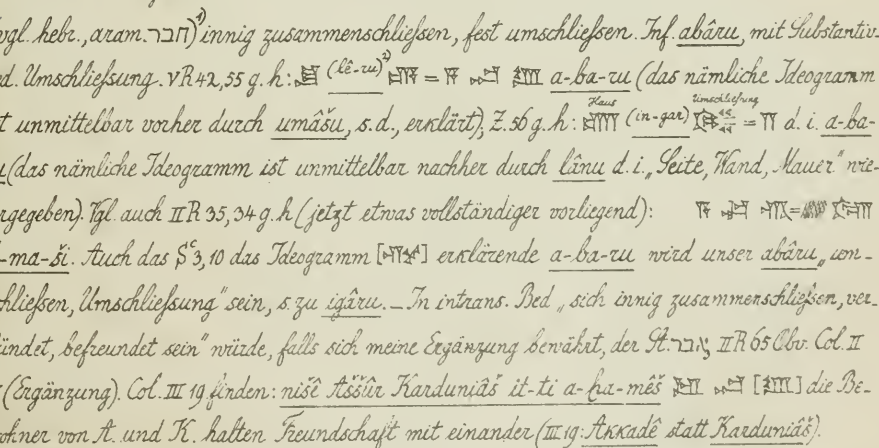 vgl. hebr., aram. חבר)¹⁾ innig zusammenschließen, fest umschließen. Inf. abâru, mit Substantiv-
d. Umschließung. VR 42, 55 g. h: (lê-ru)²⁾ = a-ba-ru (das nämliche Ideogramm
t unmittelbar vorher durch umâšu, s. d., erklärt), Z. 56 g. h: Haus (in-gar) Umschließung = d. i. a-ba-
u (das nämliche Ideogramm ist unmittelbar nachher durch lânu d. i. „Seite, Wand, Mauer" wie-
rgegeben). Vgl. auch II R 35, 34 g. h (jetzt etwas vollständiger vorliegend): 𒀀
-ma-ši. Auch das Sᶜ 3, 10 das Ideogramm [ ] erklärende a-ba-ru wird unser abâru „um-
chließen, Umschließung" sein, s. zu igâru. — In intrans. Bed. „sich innig zusammenschließen, ver-
ündet, befreundet sein" würde, falls sich meine Ergänzung bewährt, der St. אבר II R 65 Obv. Col. II
(Ergänzung). Col. III 19 finden: nišê Aššûr Karduniâš it-ti a-ḫa-mêš [ ] die Be-
ohner von A. und K. halten Freundschaft mit einander (III 19: Akkadê statt Karduniâš).